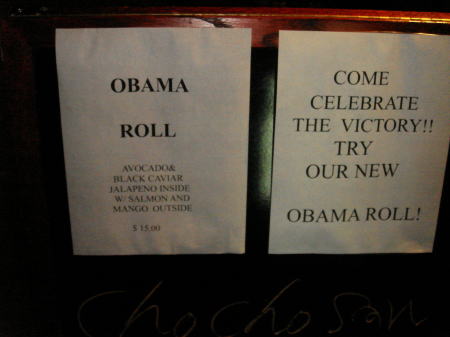 OBAMA
ROLL
AVOCADO&
BLACK CAVIAR
JALAPENO INSIDE
W/ SALMON AND
MANGO OUTSIDE
$ 15.00
COME
CELEBRATE
THE VICTORY!!
TRY
OUR NEW
OBAMA ROLL!
Cho cho San